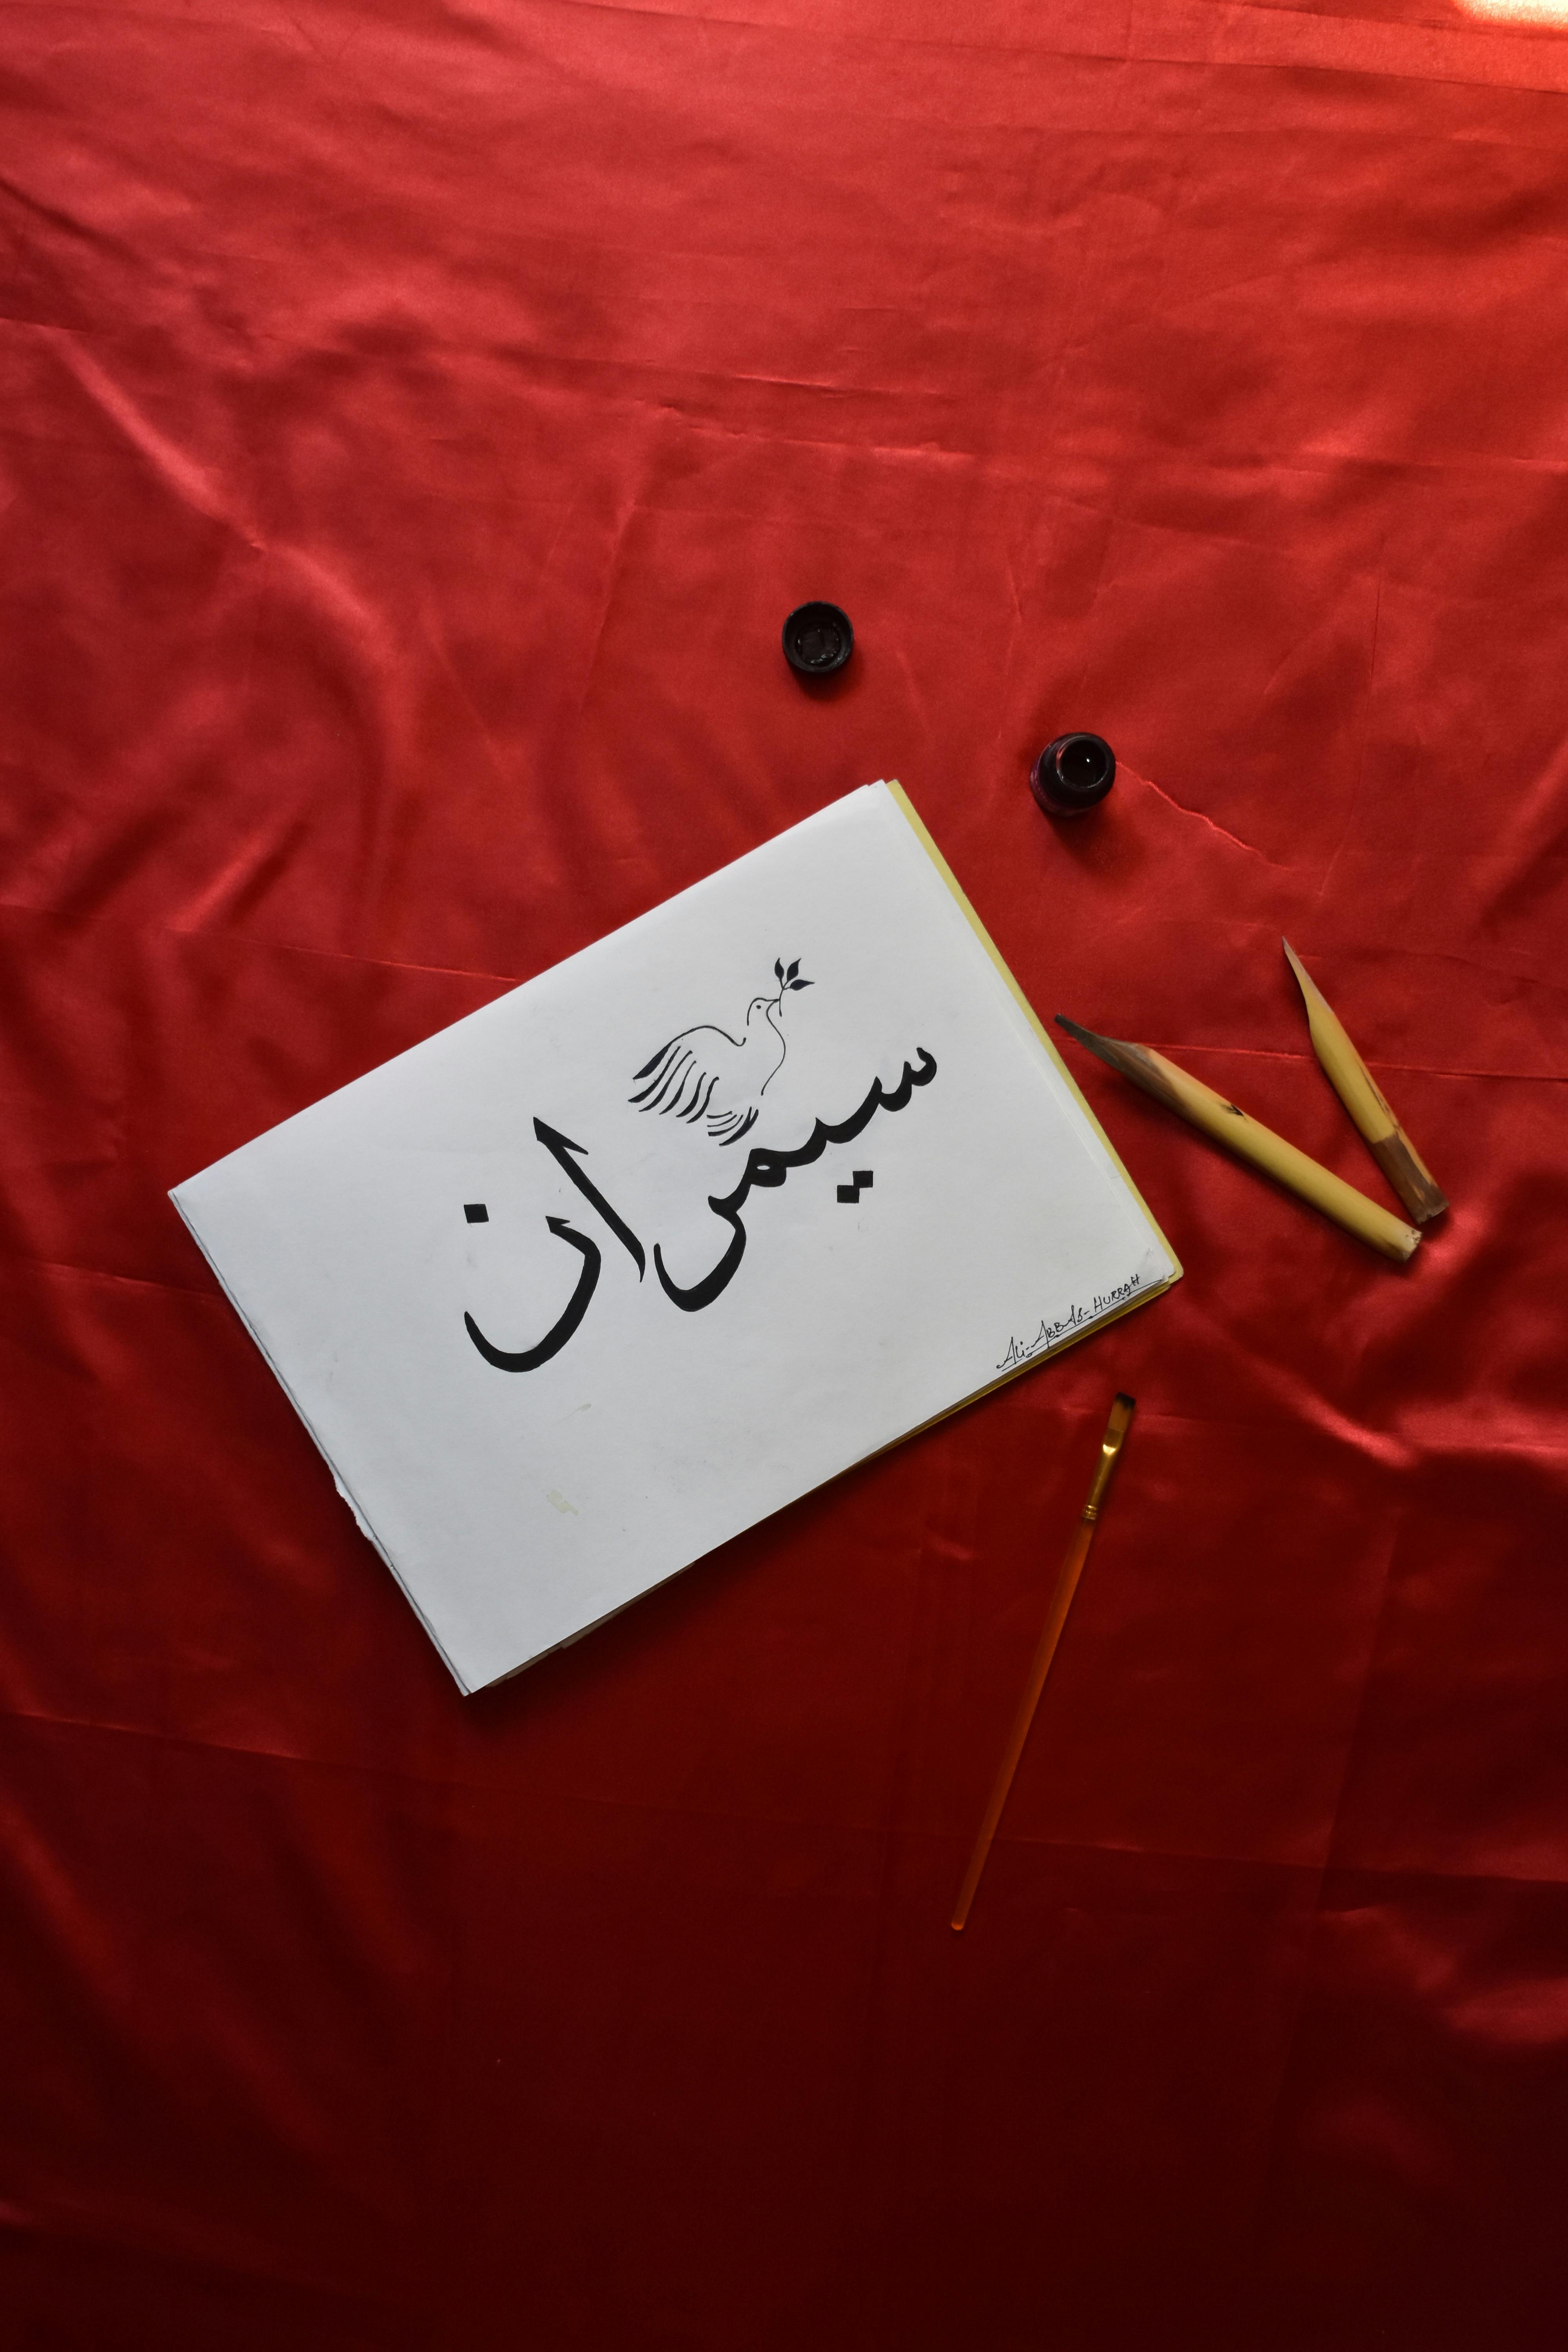 سیمران
Ali-Abbas-Hurrah